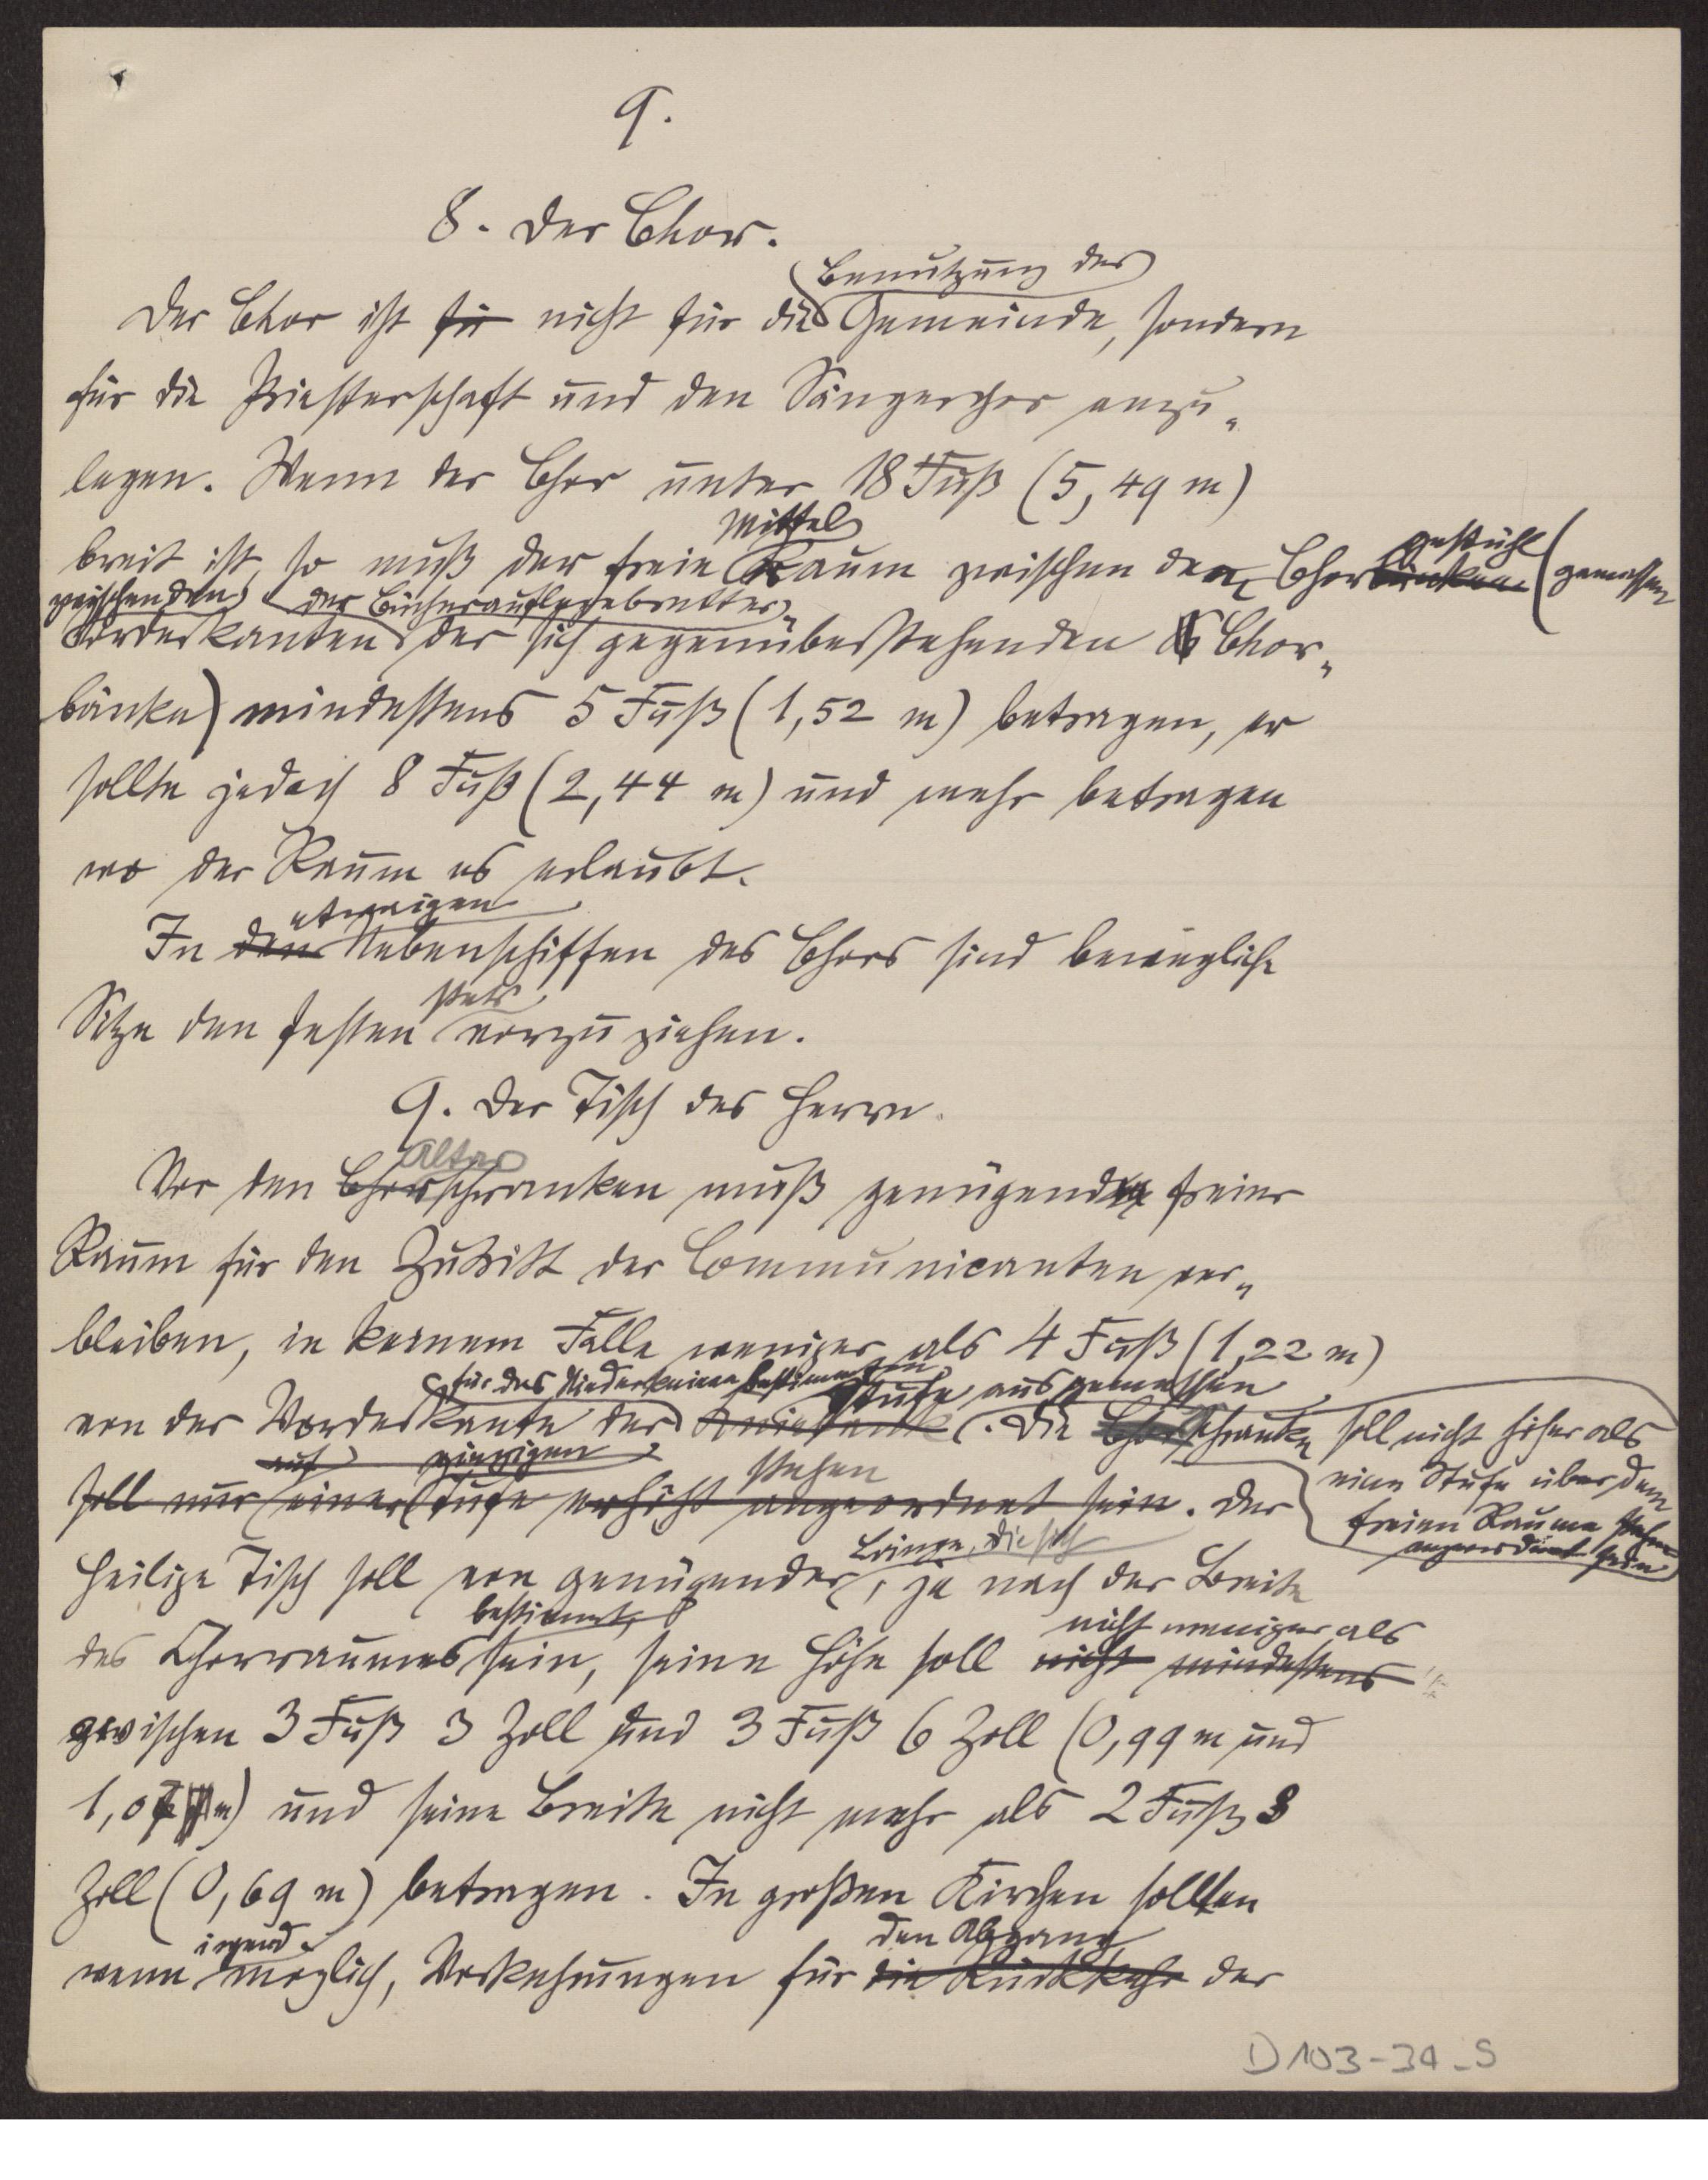 9.
8. Der Chor.
Benutzung der
Der Chor ist für nicht für die Gemeinde, sondern
für die Priesterschaft und den Sängerchor anzu-
legen. Wenn der Chor unter 18 Fuß (5,49 m)
Mittel
gestühl
breit ist, so muß der freie Raum zwischen dem Chorbänken (gemessen
zwischen den der Bücherauflegebretter
Vorderkanten der sich gegenüberstehenden Chor-
bänke) mindestens 5 Fuß (1,52 m) betragen, er
sollte jedoch 8 Fuß (2,44 m) und mehr betragen
wo der Raum es erlaubt.
etwaigen
In den Nebenschiffen des Chors sind bewegliche
stets
Sitze den festen vorzuziehen.
9. Der Tisch des Herrn.
Altar
Vor den Chorschranken muß genügend freier
Raum für den Zutritt der Communicanten ver-
bleiben, in keinem Falle weniger als 4 Fuß (1,22 m)
für das Niederknieen bestimmten Stufe ausgemessen
von der Vorderkante der Kniebank. Die Chorschranke soll nicht höher als
eine Stufe über dem
freien Raume stehen
angeordnet sein
auf einzigen stehen
soll nur einer Stufe erhöht angeordnet sein. Der
Länge, die sich
heilige Tisch soll von genügender, je nach der Breite
bestimmt,
nicht weniger als
des Chorraumes sein, seine Höhe soll nicht mindestens
zwischen 3 Fuß 3 Zoll und 3 Fuß 6 Zoll (0,99 m und
1,07 m) und seine Breite nicht mehr als 2 Fuß 3
Zoll (0,69 m) betragen. In großen Kirchen sollten
irgend
den Abgang
wenn möglich, Vorkehrungen für die Rückkehr der
D 103-34-S